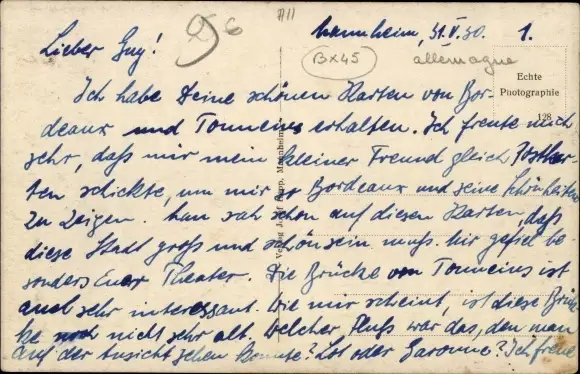 A11
Mannheim, 31.V.30. 1.
96
Lieber Guy!
BX45
allemagne
Echte
Photographie
128
Ich habe Deine schönen Karten von Bor-
deaux und Tonneins erhalten. Ich freute mich
sehr, daß mir mein kleiner Freund gleich Postkar-
ten schickte, um mir so Bordeaux und seine Schönheiten
zu zeigen. Man sah schon auf diesen Karten, daß
diese Stadt groß und schön sein muß. Mir gefiel be-
sonders Euer Theater. Die Brücke von Tonneins ist
auch sehr interessant. Wie mir scheint, ist diese Brük-
ke noch nicht sehr alt. Welcher Fluß war das, den man
auf der Ansicht sehen konnte? Lot oder Garonne? Ich freue
Verlag Mannheim